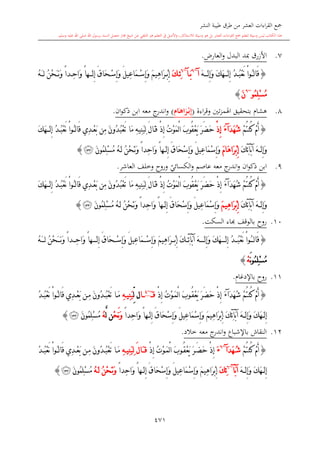 جمع القراءات العشر من طرق طيبة النشر
٧. الأزرق بمد البدل والعارض.
﴿ قَالُوا۟ نَعْبُدُ إِلَـٰهَكَ وَإِلَـٰهَ ءَابَآئِكَ إِبْرَٰهِيمَ وَإِسْمَـٰعِيلَ وَإِسْحَـٰقَ إِلَـٰهًا وَٰحِدًا وَنَحْنُ لَهُۥ
مُسْلِمُونَ ﴾
٨. هشام بتحقيق الهمزتين وقراءة (إبراهام) واندرج معه ابن ذكوان.
﴿ أَمْ كُنتُمْ شُهَدَآءَ إِذْ حَضَرَ يَعْقُوبَ ٱلْمَوْتُ إِذْ قَالَ لِبَنِيهِ مَا تَعْبُدُونَ مِنۢ بَعْدِى قَالُوا۟ نَعْبُدُ إِلَـٰهَكَ
وَإِلَـٰهَ ءَابَآئِكَ إِبْرَاهَامَ وَإِسْمَـٰعِيلَ وَإِسْحَـٰقَ إِلَـٰهًا وَٰحِدًا وَنَحْنُ لَهُۥ مُسْلِمُونَ ﴾
٩. ابن ذكوان واندرج معه عاصم والكسائيّ وروح وخلف العاشر.
﴿ أَمْ كُنتُمْ شُهَدَآءَ إِذْ حَضَرَ يَعْقُوبَ ٱلْمَوْتُ إِذْ قَالَ لِبَنِيهِ مَا تَعْبُدُونَ مِنۢ بَعْدِى قَالُوا۟ نَعْبُدُ إِلَـٰهَكَ
وَإِلَـٰهَ ءَابَآئِكَ إِبْرَٰهِيمَ وَإِسْمَـٰعِيلَ وَإِسْحَـٰقَ إِلَـٰهًا وَٰحِدًا وَنَحْنُ لَهُۥ مُسْلِمُونَ ﴾
١٠. روح بالوقف بهاء السكت.
﴿ قَالُوا۟ نَعْبُدُ إِلَـٰهَكَ وَإِلَـٰهَ ءَابَآئِكَ إِبْرَٰهِيمَ وَإِسْمَـٰعِيلَ وَإِسْحَـٰقَ إِلَـٰهًا وَٰحِدًا وَنَحْنُ لَهُۥ
مُسْلِمُونَهْ ﴾
١١. روح بالإدغام.
﴿ أَمْ كُنتُمْ شُهَدَآءَ إِذْ حَضَرَ يَعْقُوبَ ٱلْمَوْتُ إِذْ قَال لِّبَنِيهِ مَا تَعْبُدُونَ مِنۢ بَعْدِى قَالُوا۟ نَعْبُدُ
إِلَـٰهَكَ وَإِلَـٰهَ ءَابَآئِكَ إِبْرَٰهِيمَ وَإِسْمَـٰعِيلَ وَإِسْحَـٰقَ إِلَـٰهًا وَٰحِدًا وَنَحْن لَّهُۥ مُسْلِمُونَ ﴾
١٢. النقاش بالإشباع واندرج معه خلاد.
﴿ أَمْ كُنتُمْ شُهَدَآءَ إِذْ حَضَرَ يَعْقُوبَ ٱلْمَوْتُ إِذْ قَالَ لِبَنِيهِ مَا تَعْبُدُونَ مِنۢ بَعْدِى قَالُوا۟ نَعْبُدُ
إِلَـٰهَكَ وَإِلَـٰهَ ءَابَآئِكَ إِبْرَٰهِيمَ وَإِسْمَـٰعِيلَ وَإِسْحَـٰقَ إِلَـٰهًا وَٰحِدًا وَنَحْنُ لَهُۥ مُسْلِمُونَ ﴾
٤٧١